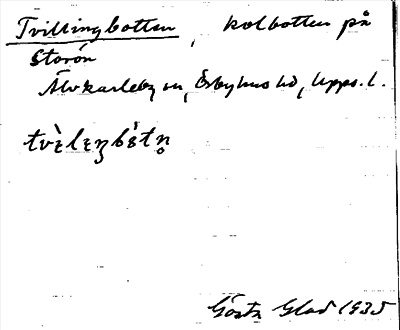 Tvillingbotten, kolbotten på
Storön
Älvkarleby sn, Örbyhus hd, Upps. l.
tvὲlεŋbɵ́tn̥
Gösta Glad 1935